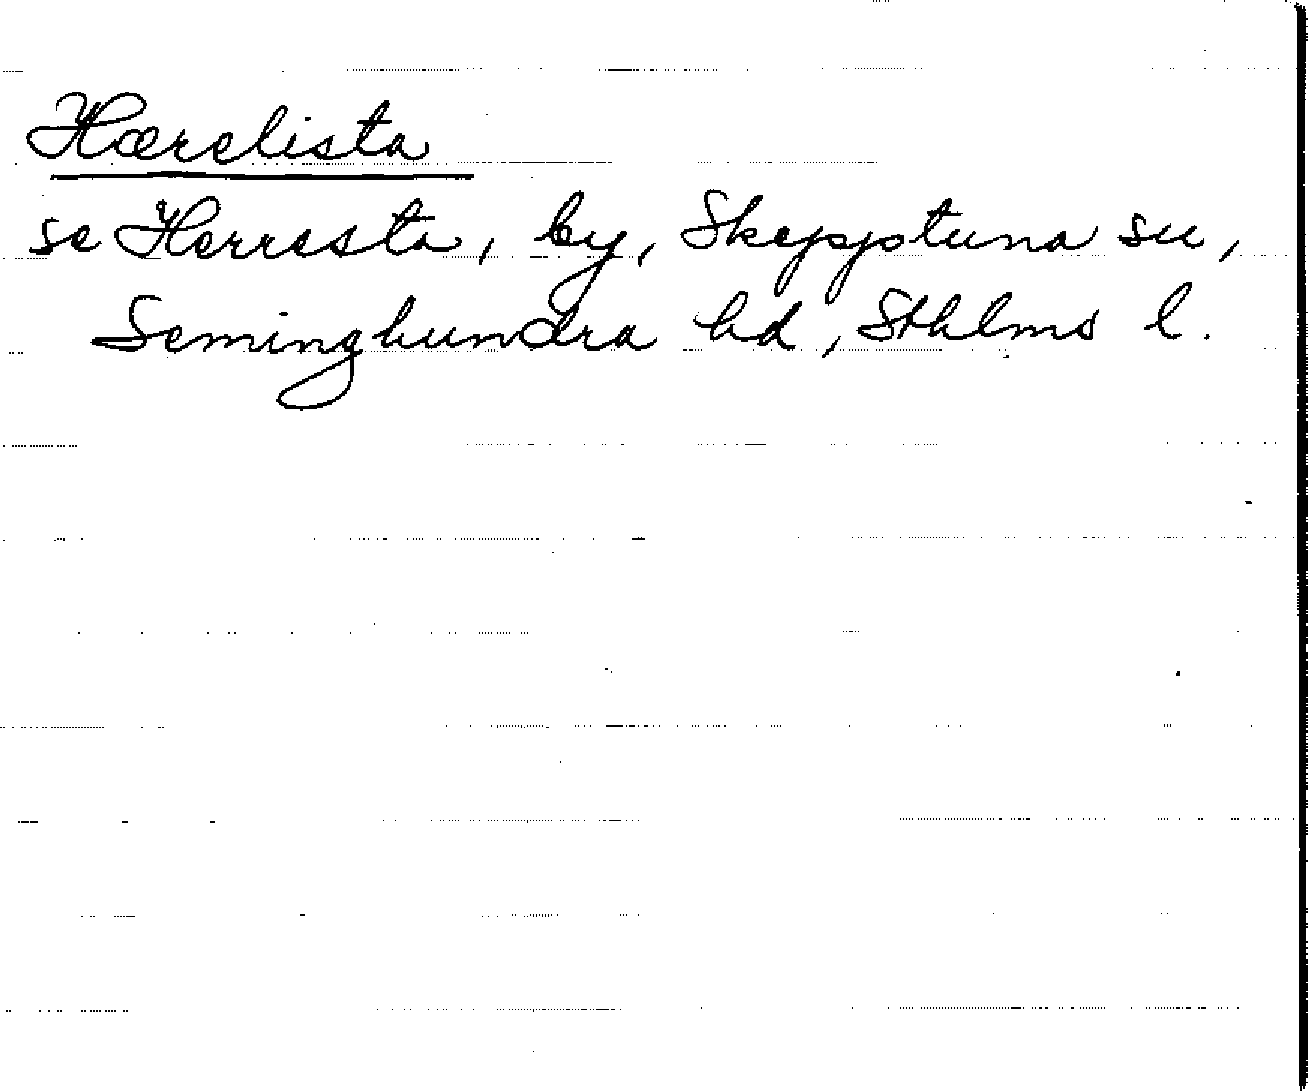 Hærelista
se Herresta, by, Skepptuna sn,
Seminghundra hd, Sthlms l.